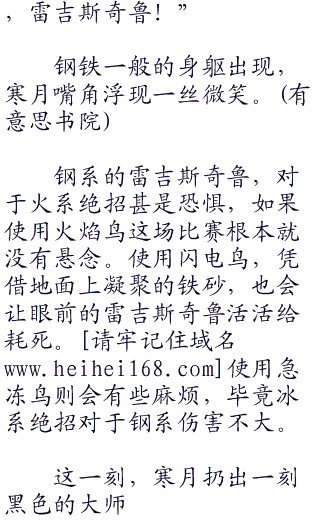 ，雷吉斯奇鲁！”
钢铁一般的身躯出现，
寒月嘴角浮现一丝微笑。(有
意思书院)
钢系的雷吉斯奇鲁，对
于火系绝招甚是恐惧，如果
使用火焰鸟这场比赛根本就
没有悬念。使用闪电鸟，凭
借地面上凝聚的铁砂，也会
让眼前的雷吉斯奇鲁活活给
耗死。[请牢记住域名
www.heihei168.com]使用急
冻鸟则会有些麻烦，毕竟冰
系绝招对于钢系伤害不大。
这一刻，寒月扔出一刻
黑色的大师